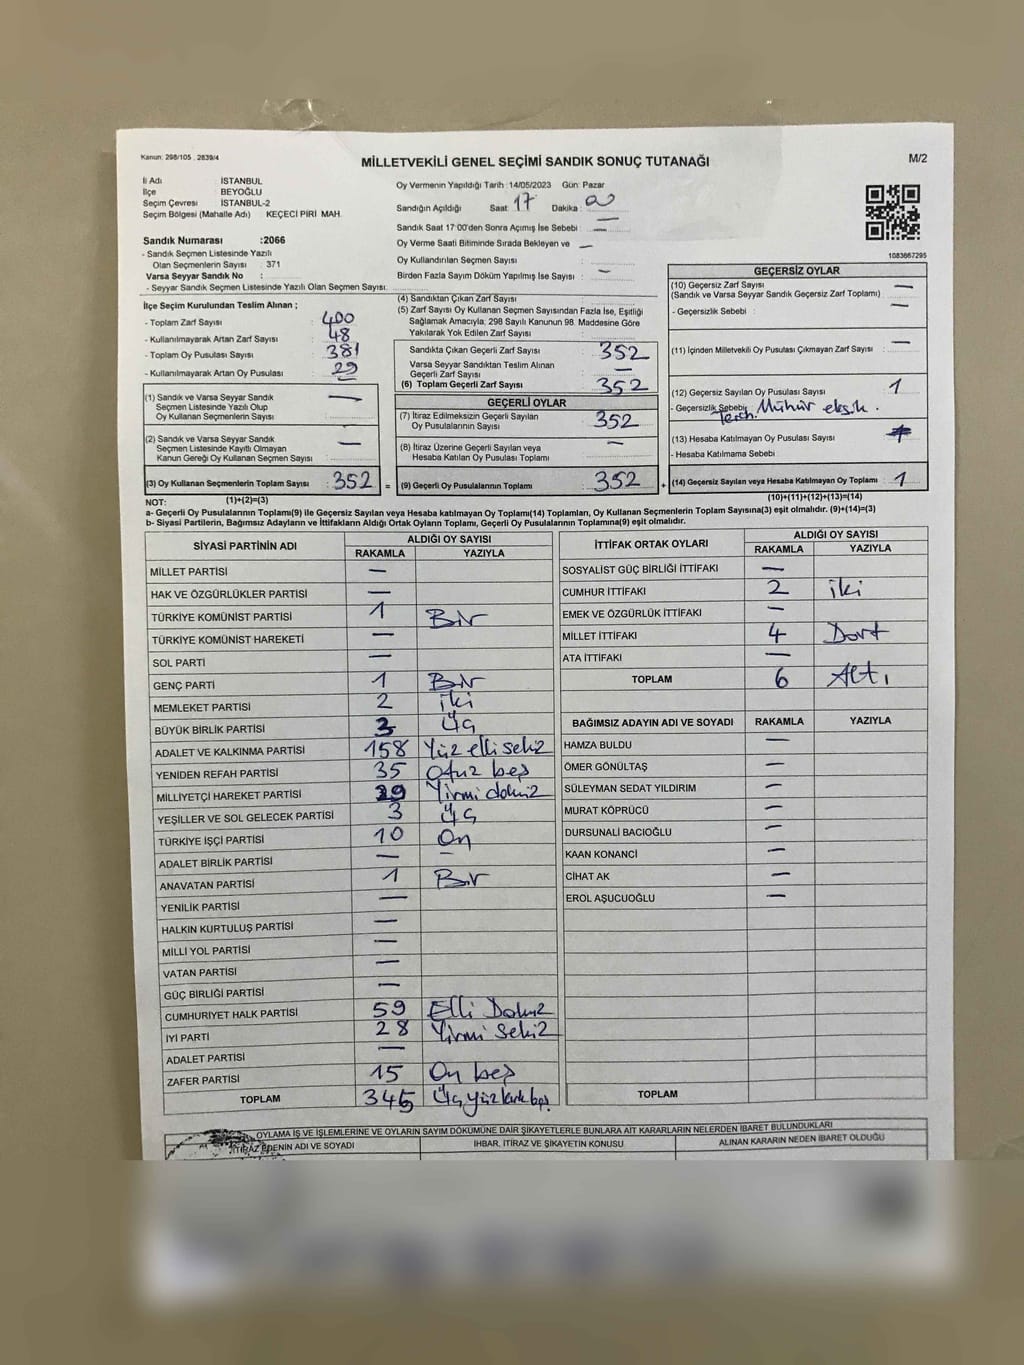 Kanun: 298/105 , 2839/4
MİLLETVEKİLİ GENEL SEÇİMİ SANDIK SONUÇ TUTANAĞI
M/2
İl Adı : İSTANBUL
İlçe : BEYOĞLU
Seçim Çevresi : İSTANBUL-2
Seçim Bölgesi (Mahalle Adı) : KEÇECİ PİRİ MAH.
Sandık Numarası :2066
- Sandık Seçmen Listesinde Yazılı
Olan Seçmenlerin Sayısı : 371
Varsa Seyyar Sandık No :
- Seyyar Sandık Seçmen Listesinde Yazılı Olan Seçmen Sayısı:
Oy Vermenin Yapıldığı Tarih : 14/05/2023 Gün: Pazar
Sandığın Açıldığı Saat : 17 Dakika :
Sandık Saat 17:00'den Sonra Açımış İse Sebebi : —
Oy Verme Saati Bitiminde Sırada Bekleyen ve —
Oy Kullandırılan Seçmen Sayısı :
Birden Fazla Sayım Döküm Yapılmış İse Sayısı : —
1083667295
İlçe Seçim Kurulundan Teslim Alınan ;
- Toplam Zarf Sayısı : 400
- Kullanılmayarak Artan Zarf Sayısı : 48
- Toplam Oy Pusulası Sayısı : 381
- Kullanılmayarak Artan Oy Pusulası : 29
(1) Sandık ve Varsa Seyyar Sandık —
Seçmen Listesinde Yazılı Olup
Oy Kullanan Seçmenlerin Sayısı :
(2) Sandık ve Varsa Seyyar Sandık —
Seçmen Listesinde Kayıtlı Olmayan
Kanun Gereği Oy Kullanan Seçmen Sayısı :
(3) Oy Kullanan Seçmenlerin Toplam Sayısı : 352 =
(4) Sandıktan Çıkan Zarf Sayısı :
(5) Zarf Sayısı Oy Kullanan Seçmen Sayısından Fazla İse, Eşitliği
Sağlamak Amacıyla, 298 Sayılı Kanunun 98. Maddesine Göre
Yakılarak Yok Edilen Zarf Sayısı :
Sandıkta Çıkan Geçerli Zarf Sayısı : 352
Varsa Seyyar Sandıktan Teslim Alınan —
Geçerli Zarf Sayısı :
(6) Toplam Geçerli Zarf Sayısı : 352
GEÇERLİ OYLAR
(7) İtiraz Edilmeksizin Geçerli Sayılan
Oy Pusulalarının Sayısı : 352
(8) İtiraz Üzerine Geçerli Sayılan veya —
Hesaba Katılan Oy Pusulası Toplamı :
(9) Geçerli Oy Pusulalarının Toplamı : 352 +
GEÇERSİZ OYLAR
(10) Geçersiz Zarf Sayısı —
(Sandık ve Varsa Seyyar Sandık Geçersiz Zarf Toplamı) :
- Geçersizlik Sebebi : —
(11) İçinden Milletvekili Oy Pusulası Çıkmayan Zarf Sayısı : —
(12) Geçersiz Sayılan Oy Pusulası Sayısı : 1
- Geçersizlik Sebebi : Mühür eksik.
(13) Hesaba Katılmayan Oy Pusulası Sayısı :
- Hesaba Katılmama Sebebi
(14) Geçersiz Sayılan veya Hesaba Katılmayan Oy Toplamı : 1
NOT: (1)+(2)=(3)
(10)+(11)+(12)+(13)=(14)
a- Geçerli Oy Pusulalarının Toplamı(9) ile Geçersiz Sayılan veya Hesaba katılmayan Oy Toplamı(14) Toplamları, Oy Kullanan Seçmenlerin Toplam Sayısına(3) eşit olmalıdır. (9)+(14)=(3)
b- Siyasi Partilerin, Bağımsız Adayların ve İttifakların Aldığı Ortak Oyların Toplamı, Geçerli Oy Pusulalarının Toplamına(9) eşit olmalıdır.
SİYASİ PARTİNİN ADI ALDIĞI OY SAYISI
RAKAMLA YAZIYLA
MİLLET PARTİSİ —
HAK VE ÖZGÜRLÜKLER PARTİSİ —
TÜRKİYE KOMÜNİST PARTİSİ 1 Bir
TÜRKİYE KOMÜNİST HAREKETİ —
SOL PARTİ —
GENÇ PARTİ 1 Bir
MEMLEKET PARTİSİ 2 iki
BÜYÜK BİRLİK PARTİSİ 3 Üç
ADALET VE KALKINMA PARTİSİ 158 Yüz elli sekiz
YENİDEN REFAH PARTİSİ 35 Otuz beş
MİLLİYETÇİ HAREKET PARTİSİ 29 Yirmi dokuz
YEŞİLLER VE SOL GELECEK PARTİSİ 3 Üç
TÜRKİYE İŞÇİ PARTİSİ 10 On
ADALET BİRLİK PARTİSİ — —
ANAVATAN PARTİSİ 1 Bir
YENİLİK PARTİSİ —
HALKIN KURTULUŞ PARTİSİ —
MİLLİ YOL PARTİSİ —
VATAN PARTİSİ —
GÜÇ BİRLİĞİ PARTİSİ —
CUMHURİYET HALK PARTİSİ 59 Elli Dokuz
İYİ PARTİ 28 Yirmi Sekiz
ADALET PARTİSİ —
ZAFER PARTİSİ 15 On beş
TOPLAM 345 Üç yüz kırk beş
İTTİFAK ORTAK OYLARI ALDIĞI OY SAYISI
RAKAMLA YAZIYLA
SOSYALİST GÜÇ BİRLİĞİ İTTİFAKI —
CUMHUR İTTİFAKI 2 iki
EMEK VE ÖZGÜRLÜK İTTİFAKI —
MİLLET İTTİFAKI 4 Dört
ATA İTTİFAKI —
TOPLAM 6 Altı
BAĞIMSIZ ADAYIN ADI VE SOYADI RAKAMLA YAZIYLA
HAMZA BULDU —
ÖMER GÖNÜLTAŞ —
SÜLEYMAN SEDAT YILDIRIM —
MURAT KÖPRÜCÜ —
DURSUNALİ BACIOĞLU —
KAAN KONANCİ —
CİHAT AK —
EROL AŞUCUOĞLU —
TOPLAM
OYLAMA İŞ VE İŞLEMLERİNE VE OYLARIN SAYIM DÖKÜMÜNE DAİR ŞİKAYETLERLE BUNLARA AİT KARARLARIN NELERDEN İBARET BULUNDUKLARI
İTİRAZ EDENİN ADI VE SOYADI İHBAR, İTİRAZ VE ŞİKAYETİN KONUSU ALINAN KARARIN NEDEN İBARET OLDUĞU